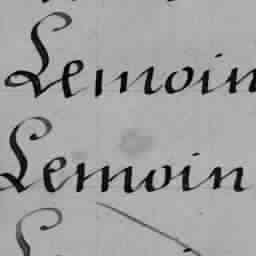 Lemoin
Lemoin